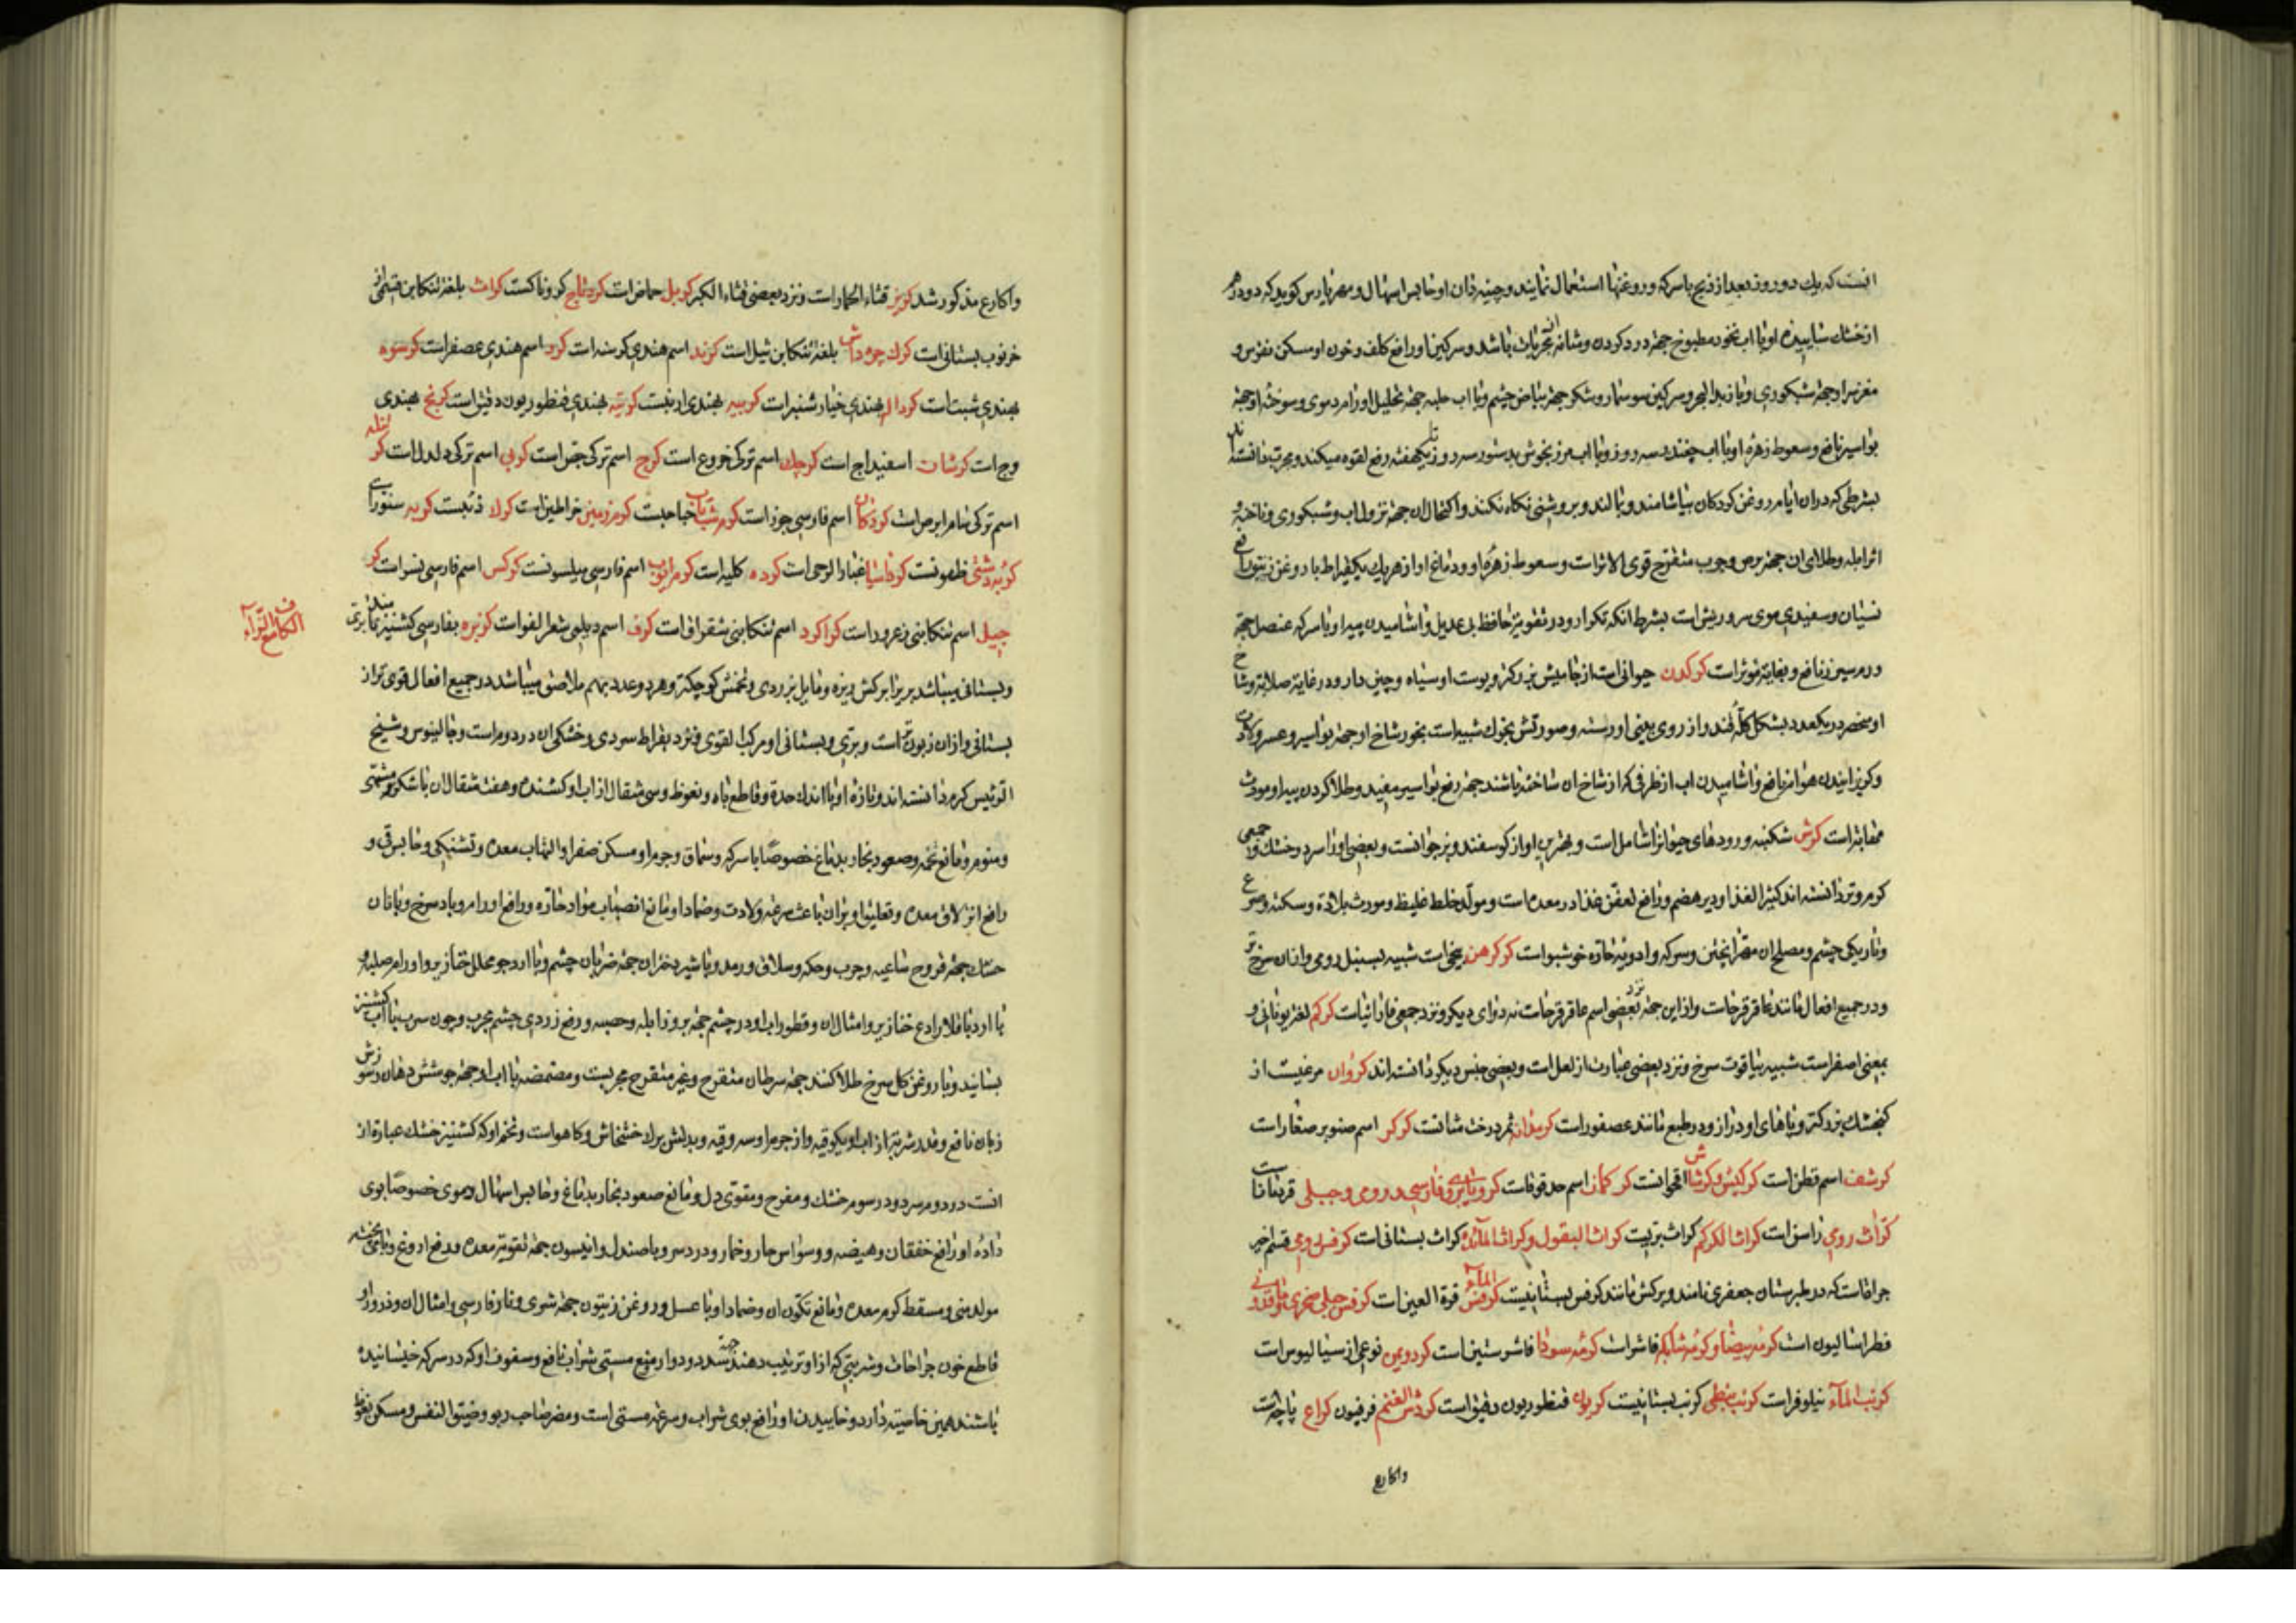 انست که یك دو روز بعد از ذبح با سرکه و روغنها استعمال نمایند و چینه دان او حابس اسهال و مهریارس کوید که دو درهم
از خشك ساییده او با اب نخود مطبوخ جهة درد کردن و مثانه از مجربات باشد و سرکین او رافع کلف و خون او مسکن نقرس و
مغز سر او جهة شبکوری و با زبدالبحر و سرکین سوسمار و شکر جهة بیاض چشم و با اب حلبه جهة تحلیل اورام دموی و سوخته او جهة
بواسیر نافع و سعوط زهره او با اب چغندر سه روز و با اب مرزنجوش بدستور سه روز تا یکهفته رفع لقوه میکند و مجرب دانسته اند
بشرطی که دران ایام روغن کردکان بیاشامند و بمالند و بروشنی نکاه نکنند و اکتحال ان جهة نزول اب و شبکوری و ناخنه و
اثر ابله و طلای ان جهة برص و جرب متقرح قوی الاثر است و سعوط زهره او و دماغ او از هر یك یکقیراط با روغن زیتون رافع
نسیان و سفیدی موی سر و ریش است بشرط انکه تکرار رود و تقویة حافظه بی عدیل و اشامیدن پیه او با سرکه عنصل جهة
ورم سپرز نافع و بغایة موثر است کرکدن حیوانی است از جامیش بزرکتر و پوست او سیاه و چین دار و در غایة صلابة و شاخ
او منحصر در یکعدد بشکل کله قند و از روی بینی او رسته و صورتش بخوك شبیه است بخور شاخ او جهة بواسیر و عسر ولادت
و کریزانیدن هوام نافع و اشامیدن اب از ظرفی که از شاخ ان ساخته باشند جهة رفع بواسیر مفید و طلا کردن پیه او مورث
مهابة است کرش شکنبه و رودهای حیوانرا شامل است و بهترین او از کوسفند و بز جوانست و بعضی او را سرد و خشك و جمعی
کرم و تر دانسته اند کثیر الغذا و دیر هضم و رافع تعفن غذا در معده است و مولد خلط غلیظ و مورث بلادة و سکته و صرع
و تاریکی چشم و مصلح ان مهرا پختن و سرکه و ادویه حاره خوشبو است کرکرهن بیخی است شبیه بسنبل رومی و ازان سرخ تر
و در جمیع افعال مانند عاقرقرحاست و از این جهة نزد بعضی اسم عاقرقرحاست نه دوای دیکر و نزد جمعی فاوانیاست کرکم لغة یونانی و
بمعنی اصفر است شبیه بیاقوت سرخ و نزد بعضی عبارت از لعل است و بعضی جنس دیکر دانسته اند کروان مرغیست از
کنجشك بزرکتر و پاهای او دراز و در طبع مانند عصفور است کرمدانه ثمر درخت شا نست کرکر اسم صنوبر صغار است
کرشف اسم قطن است کرکیش و کرشاش اقحوانست کرکمان اسم حندقوقاست کرویای بری و فارسی و رومی و جبلی قردماناست
کراث رومی راسن است کراث الکرم کراث بریست کراث البقول و کراث المائده کراث بستانی است کرفس رومی قسم اخیر
جرافا است که در طبرستان جعفری نامند و برکش مانند کرفس بستانیست کرفس المآء قرة العین است کرفس جبلی صخری ماقدونی
فطراسالیون است کرمه بیضا و کرمه شائکه فاشرا است کرمه سودا فاشرستین است کردومین نوعی از سیسالیوس است
کرنب المآء نیلوفر است کرنب نبطی کرنب بستانیست کریون قنطوریون دقیق است کردش الغنم فرفیون کراع پاچه است
و اکارع
و اکارع مذکور شد کریز قثاء الحمار است و نزد بعضی قثاء الکبر کربل حماض است کردناج کروناکست کراث بلغة تنکابن قسمی از
خرنوب بستانی است کرك چوه داش بلغة تنکابن ثیل است کرند اسم هندی کرسنه است کرد اسم هندی عصفر است کرسوه
بهندی شبت است کردالم بهندی خیارشنبر است کربیه بهندی ارنبست کرتیه بهندی قنطوریون دقیق است کرنج بهندی
وج است کرشان اسفیداج است کرچك اسم ترکی خروع است کرج اسم ترکی جص است کرپی اسم ترکی دلدل است کر
اسم ترکی سام ابرص است کردکان اسم فارسی جوز است کرم شبتاب حباحبست کرم زمین خراطین است کرلا ذئبست کربه سنور است
کربه دشتی ظفونست کرد اسیا غبار الرحی است کرده کلیه است کرم ایوب اسم فارسی میلسونست کرکس اسم فارسی نسر است کر
چیل اسم تنکابنی زعرور است کراکرد اسم تنکابنی شقراق است کرف اسم دیلمی شعر الغول است کزبره بفارسی کشنیز نامند بری
الکاف مع الزآء
و بستانی میباشد بری برابر کش ریزه و مایل بزردی و تخمش کوچکتر و هر دو عدد بهم ملاصق میباشد در جمیع افعال قوی تر از
بستانی و ازان زبونست و بری و بستانی او مرکب القوی و نزد بقراط سردی و خشکی ان در دوم است و جالینوس و شیخ
الرئیس کرم دانسته اند و تازه او با اندك حدة و قاطع باه و نعوظ و سی مثقال از اب او کشنده و هفت مثقال ان با شکر مشهی
و منوم و مانع تخمه و صعود بخار بدماغ خصوصا با سرکه و سماق و جرم او مسکن صفرا و التهاب معده و تشنکی و حابس قی و
رافع انزلاق معده و تعلیق او بران باعث سرعة ولادت و ضماد او مانع انصباب مواد حاره و رافع اورام و باد سرخ و با نان
خشك جهة قروح ساعیه و جرب و حکه و سلاق و رمد و با شیر دختران جهة ضربان چشم و با ارد جو محلل خنازیر و اورام صلبه و
با ارد باقلا رادع خنازیر و امثال ان و قطور اب او در چشم جهة بروز ابله و حصبه و رفع زردی چشم مجرب و چون سرب با اب کشنیز
بسایند و با روغن کل سرخ طلا کنند جهة سرطان متقرح و غیر متقرح مجربست و مضمضه با اب او جهة جوشش دهان و سوزش
زبان نافع و قدر شربة از اب او یکوقیه و از جرم او سه وقیه و بدلش برك خشخاش و کاهو است و تخم او که کشنیز خشك عبارة از
انست در دوم سرد و در سوم خشك و مفرح و مقوی دل و مانع صعود بخار بدماغ و حابس اسهال دموی خصوصا بوی
داده او رافع خفقان و هیضه و وسواس حار و خمار و درد سر و با صندل و انیسون جهة تقویة معده و رفع اروغ و با می پخته
مولد منی و مسقط کرم معده و مانع تکون ان و ضماد او با عسل و روغن زیتون جهة شری و نار فارسی و امثال ان و ذرور او
قاطع خون جراحات و شربتی که از او ترتیب دهند جهة سدر و دوار و منع مستی شراب نافع و سفوف او که در سرکه خیسانیده
باشند همین خاصیة دارد و خاییدن او رافع بوی شراب و سرعة مستی است و مضر صاحب ربو و ضیق النفس و مسکن نعوظ